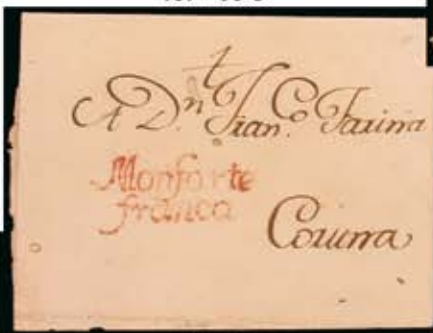 A D.n Fran.co Farina
Monforte
franca
Coruna